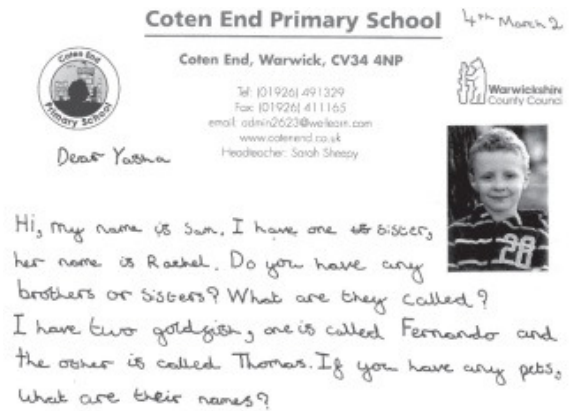 Coten End Primary School
4th March 2
Coten End, Warwick, CV34 4NP
Coten End
Primary School
Tel: (01926) 491329
Fax: (01926) 411165
email: admin2623@welearn.com
www.cotenend.co.uk
Headteacher: Sarah Sheepy
Warwickshire
County Counci
Dear Yasha
28
Hi, my name is Sam. I have one sister,
her name is Rachel. Do you have any
brothers or sisters? What are they called?
I have two goldfish, one is called Fernando and
the other is called Thomas. If you have any pets,
what are their names?